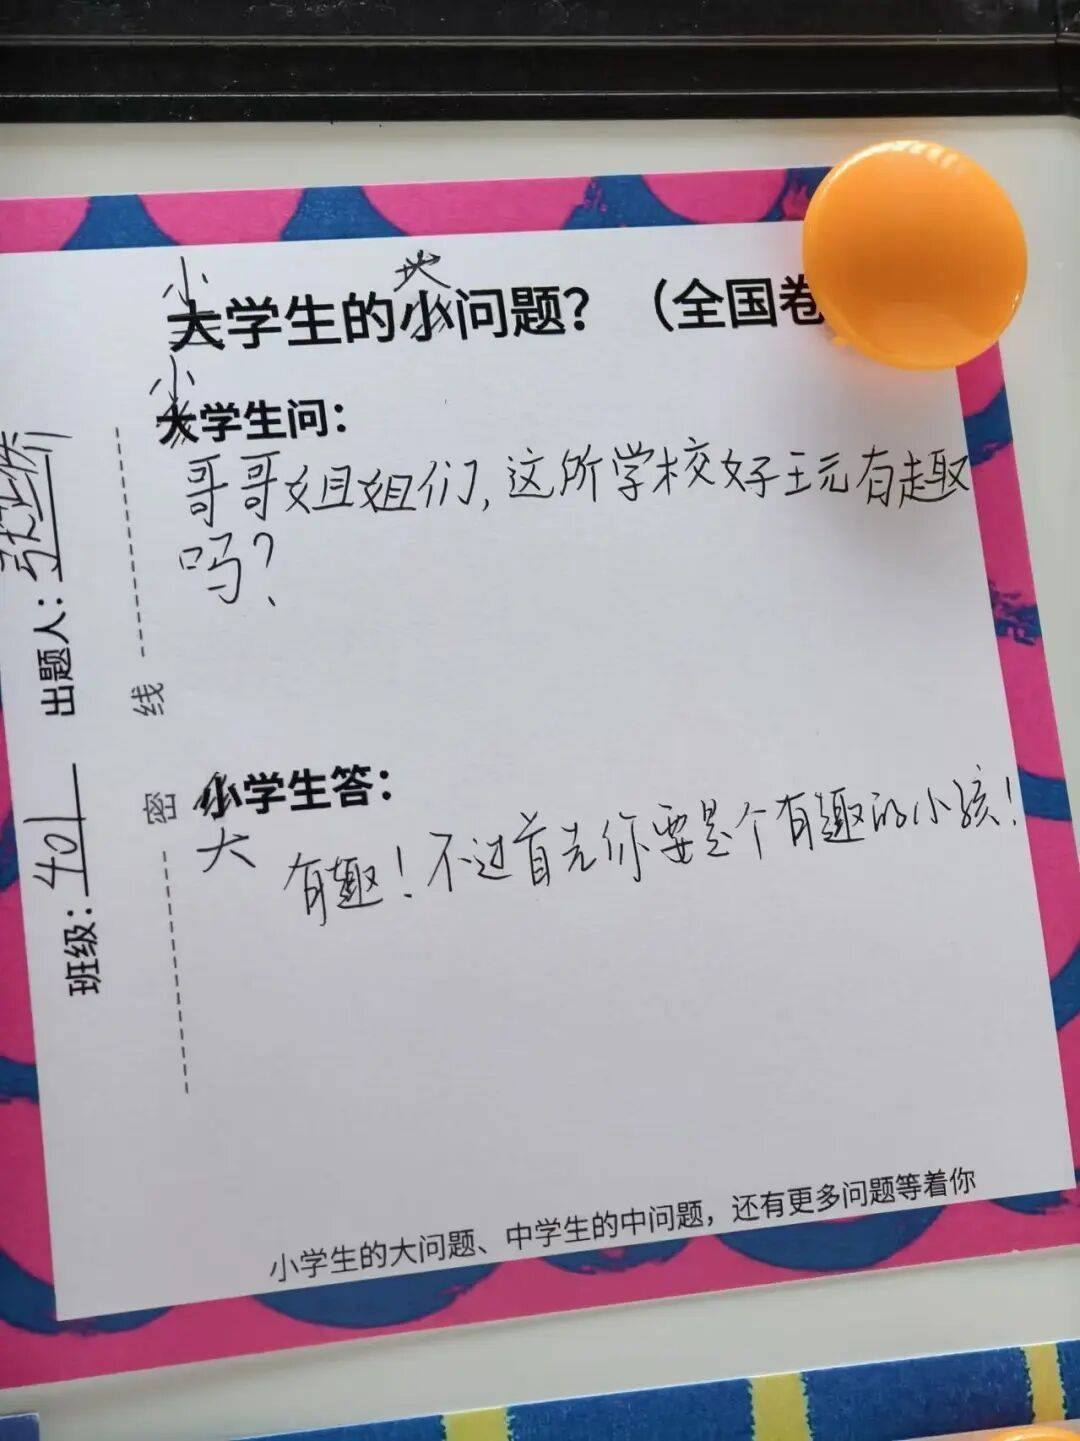 小学生的大问题？（全国卷
小学生问：
哥哥姐姐们，这所学校好玩有趣
吗？
大学生答：
有趣！不过首先你要是个有趣的小孩！
小学生的大问题、中学生的中问题，还有更多问题等着你
班级：401 出题人：张
密 线